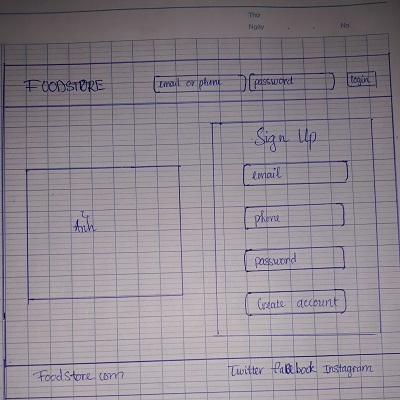 Thứ
Ngày No.
FOODSTORE email or phone password login
Sign Up
email
Ảnh
phone
password
Create account
FoodStore.com Twitter facebook Instagram